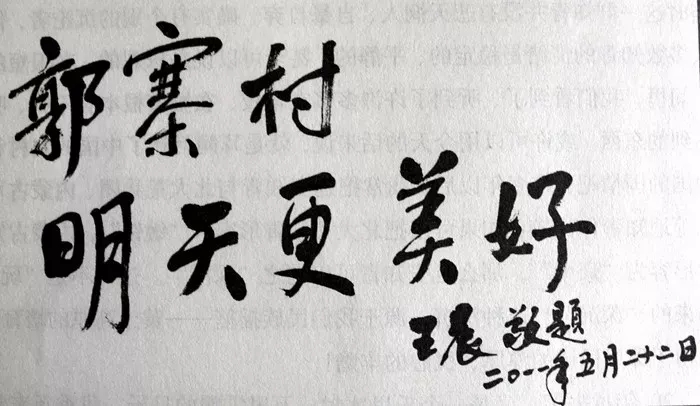 郭寨村
明天更美好
王晨 敬题
二〇一一年五月二十二日